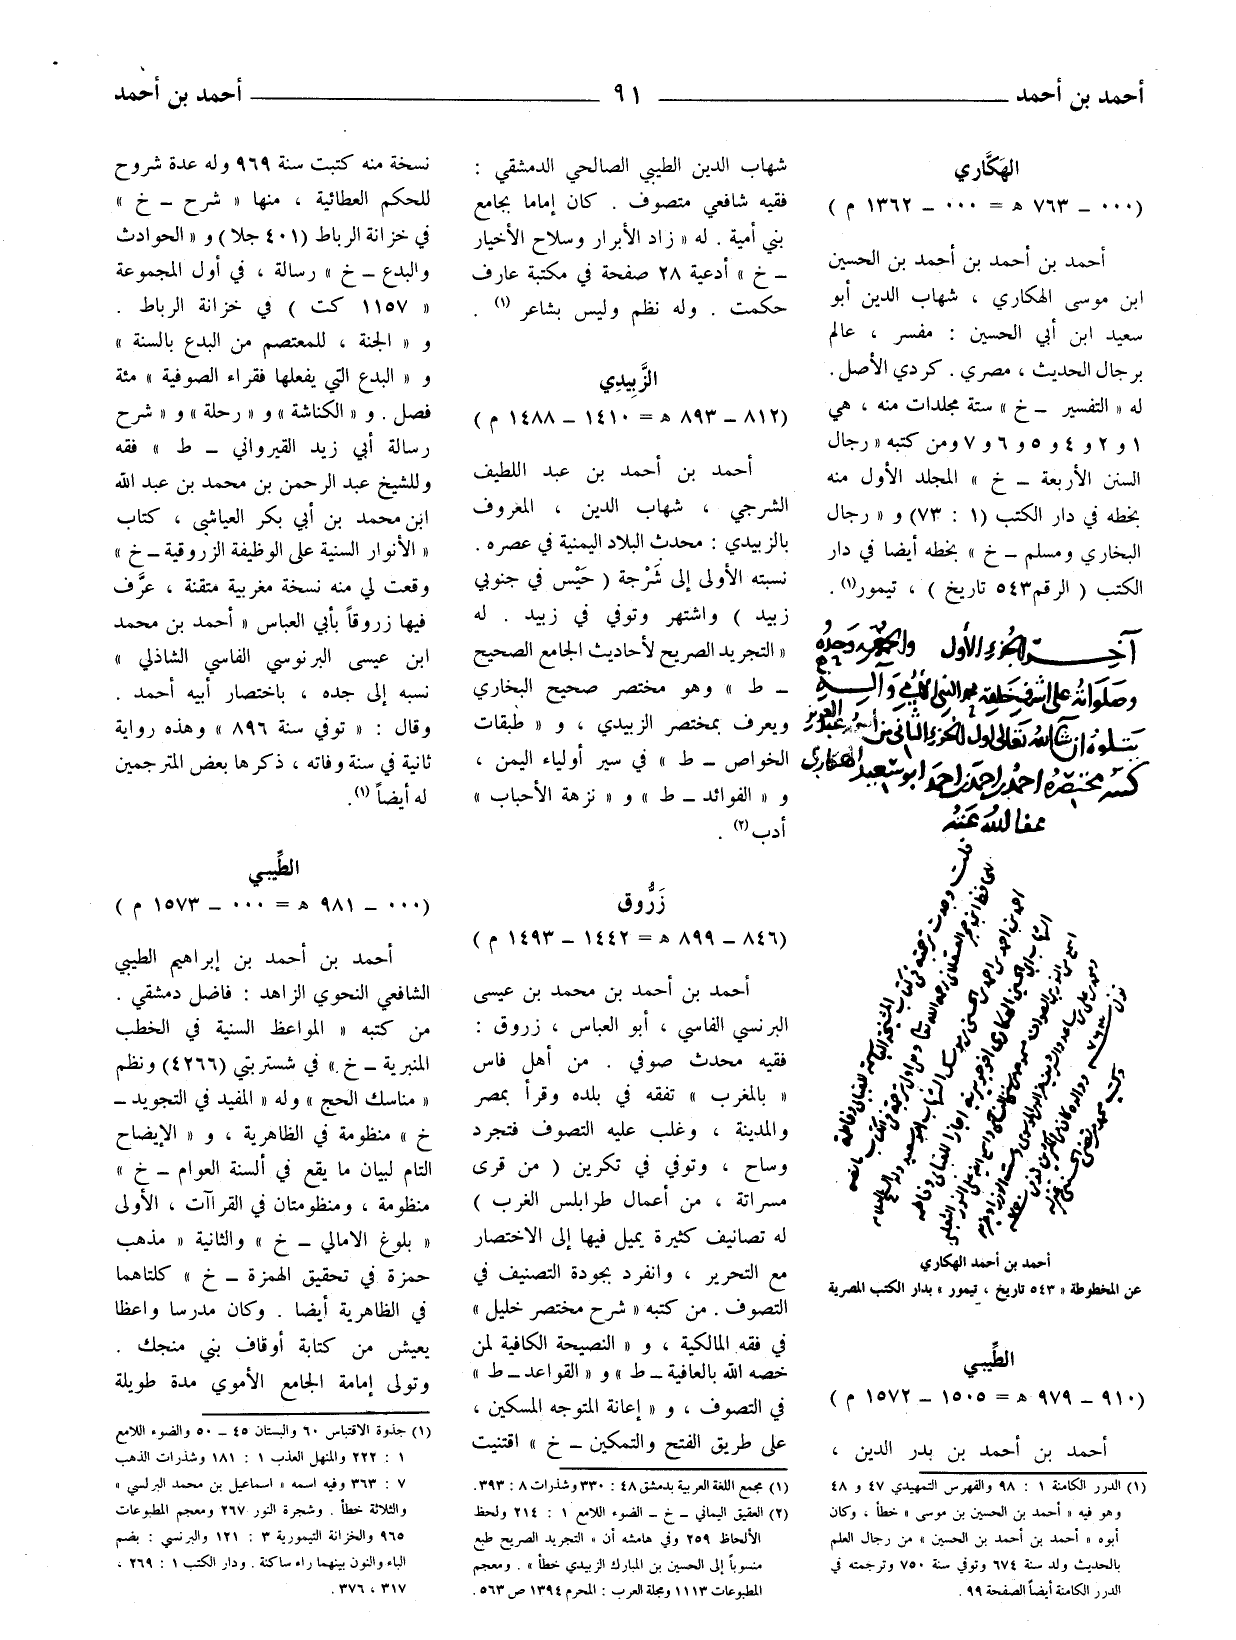 أحمد بن أحمد ـــــ ٩١ ـــــ أحمد بن أحمد
الهَكَّاري
(٠٠٠ ـ ٧٦٣ هـ = ٠٠٠ ـ ١٣٦٢ م )
أحمد بن أحمد بن أحمد بن الحسين
ابن موسى الهكاري ، شهاب الدين أبو
سعيد ابن أبي الحسين : مفسر ، عالم
برجال الحديث ، مصري . كردي الأصل .
له « التفسير ـ خ » ستة مجلدات منه ، هي
١ و ٢ و ٤ و ٥ و ٦ و ٧ ومن كتبه « رجال
السنن الأربعة ـ خ » المجلد الأول منه
بخطه في دار الكتب (١ : ٧٣) و « رجال
البخاري ومسلم ـ خ » بخطه أيضا في دار
الكتب ( الرقم ٥٤٣ تاريخ ) ، تيمور(١) .
آخر الجزء الأول والحمد لله وحده
وصلواته على أشرف خلقه محمد النبي الأمي وآله
يتلوه إن شاء الله تعالى أول الجزء الثاني من اسمه عبد العزيز
كتبه مختصره احمد بن احمد بن احمد ابو سعيد الهكاري
عفا الله عنه
أحمد بن أحمد الهكاري
عن المخطوطة « ٥٤٣ تاريخ ، تيمور » بدار الكتب المصرية
الطِّيبي
(٩١٠ ـ ٩٧٩ هـ = ١٥٠٥ ـ ١٥٧٢ م )
أحمد بن أحمد بن بدر الدين ،
(١) الدرر الكامنة ١ : ٩٨ والفهرس التمهيدي ٤٧ و ٤٨
وهو فيه « أحمد بن الحسين بن موسى » خطأ ، وكان
أبوه « أحمد بن أحمد بن الحسين » من رجال العلم
بالحديث ولد سنة ٦٧٤ وتوفي سنة ٧٥٠ وترجمته في
الدرر الكامنة أيضاً الصفحة ٩٩ .
شهاب الدين الطيبي الصالحي الدمشقي :
فقيه شافعي متصوف . كان إماما بجامع
بني أمية . له « زاد الأبرار وسلاح الأخيار
ـ خ » أدعية ٢٨ صفحة في مكتبة عارف
حكمت . وله نظم وليس بشاعر (١) .
الزَّبِيدِي
(٨١٢ ـ ٨٩٣ هـ = ١٤١٠ ـ ١٤٨٨ م )
أحمد بن أحمد بن عبد اللطيف
الشرجي ، شهاب الدين ، المعروف
بالزبيدي : محدث البلاد اليمنية في عصره .
نسبته الأولى إلى شَرْجة ( حَيْس في جنوبي
زبيد ) واشتهر وتوفي في زبيد . له
« التجريد الصريح لأحاديث الجامع الصحيح
ـ ط » وهو مختصر صحيح البخاري
ويعرف بمختصر الزبيدي ، و « طبقات
الخواص ـ ط » في سير أولياء اليمن ،
و « الفوائد ـ ط » و « نزهة الأحباب »
أدب(٢) .
زَرُّوق
(٨٤٦ ـ ٨٩٩ هـ = ١٤٤٢ ـ ١٤٩٣ م )
أحمد بن أحمد بن محمد بن عيسى
البرنسي الفاسي ، أبو العباس ، زروق :
فقيه محدث صوفي . من أهل فاس
« بالمغرب » تفقه في بلده وقرأ بمصر
والمدينة ، وغلب عليه التصوف فتجرد
وساح ، وتوفي في تكرين ( من قرى
مسراتة ، من أعمال طرابلس الغرب )
له تصانيف كثيرة يميل فيها إلى الاختصار
مع التحرير ، وانفرد بجودة التصنيف في
التصوف . من كتبه « شرح مختصر خليل »
في فقه المالكية ، و « النصيحة الكافية لمن
خصه الله بالعافية ـ ط » و « القواعد ـ ط »
في التصوف ، و « إعانة المتوجه المسكين ،
على طريق الفتح والتمكين ـ خ » اقتنيت
(١) مجمع اللغة العربية بدمشق ٤٨ : ٣٣٠ وشذرات ٨ : ٣٩٣ .
(٢) العقيق اليماني ـ خ ـ الضوء اللامع ١ : ٢١٤ ولحظ
الألحاظ ٢٥٩ وفي هامشه أن « التجريد الصريح طبع
منسوباً إلى الحسين بن المبارك الزبيدي خطأ » . ومعجم
المطبوعات ١١١٣ ومجلة العرب : المحرم ١٣٩٤ ص ٥٦٣ .
نسخة منه كتبت سنة ٩٦٩ وله عدة شروح
للحكم العطائية ، منها « شرح ـ خ »
في خزانة الرباط (٤٠١ جلا) و « الحوادث
والبدع ـ خ » رسالة ، في أول المجموعة
« ١١٥٧ كت ) في خزانة الرباط .
و « الجنة ، للمعتصم من البدع بالسنة »
و « البدع التي يفعلها فقراء الصوفية » مئة
فصل . و « الكناشة » و « رحلة » و « شرح
رسالة أبي زيد القيرواني ـ ط » فقه
وللشيخ عبد الرحمن بن محمد بن عبد الله
ابن محمد بن أبي بكر العياشي ، كتاب
« الأنوار السنية على الوظيفة الزروقية ـ خ »
وقعت لي منه نسخة مغربية متقنة ، عرَّف
فيها زروقاً بأبي العباس « أحمد بن محمد
ابن عيسى البرنوسي الفاسي الشاذلي »
نسبه إلى جده ، باختصار أبيه أحمد .
وقال : « توفي سنة ٨٩٦ » وهذه رواية
ثانية في سنة وفاته ، ذكرها بعض المترجمين
له أيضاً (١).
الطِّيبي
(٠٠٠ ـ ٩٨١ هـ = ٠٠٠ ـ ١٥٧٣ م )
أحمد بن أحمد بن إبراهيم الطيبي
الشافعي النحوي الزاهد : فاضل دمشقي .
من كتبه « المواعظ السنية في الخطب
المنبرية ـ خ » في شستربتي (٤٢٦٦) ونظم
« مناسك الحج » وله « المفيد في التجويد ـ
خ » منظومة في الظاهرية ، و « الإيضاح
التام لبيان ما يقع في ألسنة العوام ـ خ »
منظومة ، ومنظومتان في القراآت ، الأولى
« بلوغ الامالي ـ خ » والثانية « مذهب
حمزة في تحقيق الهمزة ـ خ » كلتاهما
في الظاهرية أيضا . وكان مدرسا واعظا
يعيش من كتابة أوقاف بني منجك .
وتولى إمامة الجامع الأموي مدة طويلة
(١) جذوة الاقتباس ٦٠ والبستان ٤٥ ـ ٥٠ والضوء اللامع
١ : ٢٢٢ والمنهل العذب ١ : ١٨١ وشذرات الذهب
٧ : ٣٦٣ وفيه اسمه « اسماعيل بن محمد البرلسي »
والثلاثة خطأ . وشجرة النور ٢٦٧ ومعجم المطبوعات
٩٦٥ والخزانة التيمورية ٣ : ١٢١ والبرنسي : بضم
الباء والنون بينهما راء ساكنة . ودار الكتب ١ : ٢٦٩ ،
٣١٧ ، ٣٧٦ .